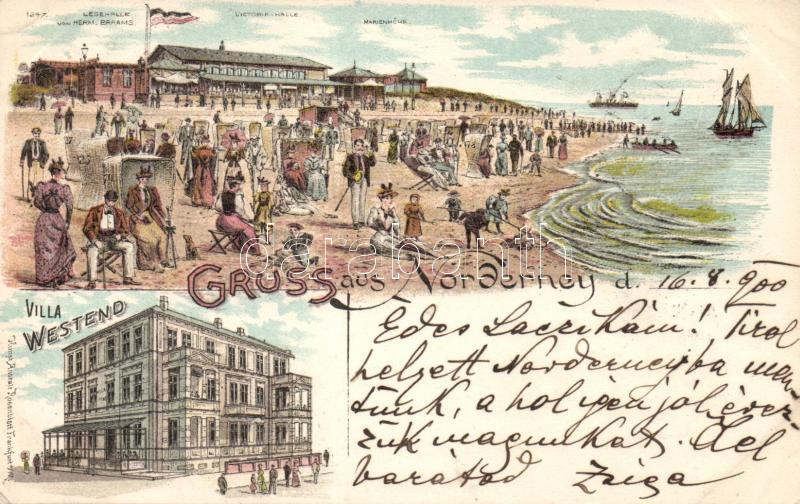 1247. LESEHALLE VON HERM. BRAAMS. VICTORIA-HALLE. MARIENHÖHE.
GRUSS aus Norderney d. 16.8.900
darabanth
VILLA WESTEND
Edes Laczikám! Tirol
helyett Norderneyba men-
tünk, a hol igen jól érez-
zük magunkat. Ölel
barátod Zsiga